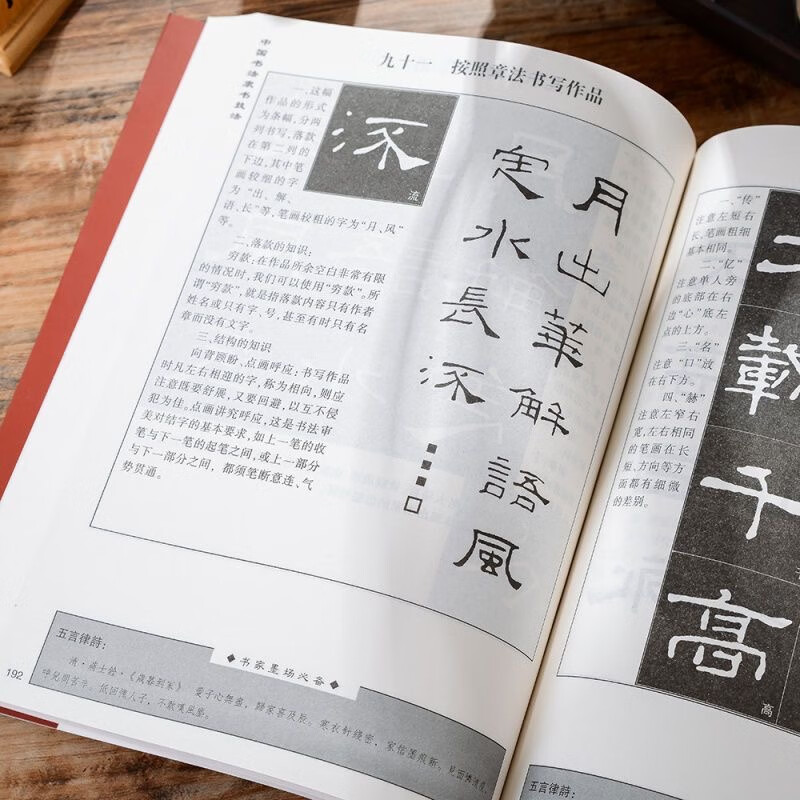 中国书法隶书技法
九十一　按照章法书写作品
一、这幅
作品的形式
为条幅，分两
列书写，落款
在第二列的
下边，其中笔
画较细的字
为“出、解、
语、长”等，笔画较粗的字为“月、风”
等。
流
流
二、落款的知识：
穷款：在作品所余空白非常有限
的情况时，我们可以使用“穷款”。所
谓“穷款”，就是指落款内容只有作者
姓名或只有字、号，甚至有时只有名
章而没有文字。
三、结构的知识
向背顾盼、点画呼应：书写作品
时凡左右相迎的字，称为相向，则应
注意既要舒展，又要回避，以互不侵
犯为佳。点画讲究呼应，这是书法审
美对结字的基本要求，如上一笔的收
笔与下一笔的起笔之间，或上一部分
与下一部分之间，都须笔断意连、气
势贯通。
月出華解語風
定水長流
192
五言律詩：
◆书家墨场必备◆
清·蒋士铨·《歲暮到家》　愛子心無盡，歸家喜及辰。寒衣針綫密，家信墨痕新。見面憐清瘦，
呼兒問苦辛。低回愧人子，不敢嘆風塵。
一、“传”
注意左短右
长，笔画粗细
基本相同。
二、“亿”
注意单人旁
的底部在右
边“心”底左
点的上方。
三、“名”
注意“口”放
在右下方。
四、“赫”
注意左窄右
宽，左右相同
的笔画在长
短、方向等方
面都有细微
的差别。
載
千
高
高
五言律詩：